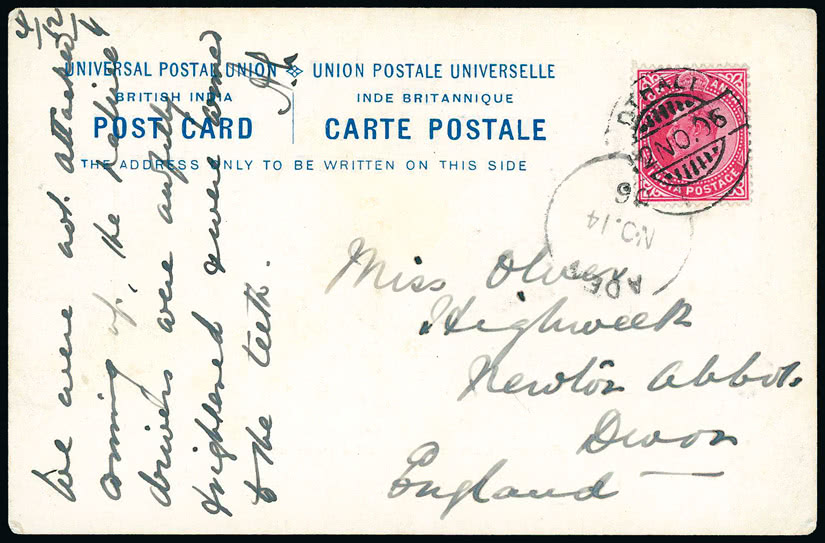 UNIVERSAL POSTAL UNION UNION POSTALE UNIVERSELLE
BRITISH INDIA INDE BRITANNIQUE
POST CARD CARTE POSTALE
THE ADDRESS ONLY TO BE WRITTEN ON THIS SIDE
INDIA POSTAGE
NO. 06
ADEN
NO. 14
06
Miss Oliver
Highweek
Newton Abbot
Devon
England
We were not attacked
coming up, the native
drivers were awfully
frightened & were armed
to the teeth.